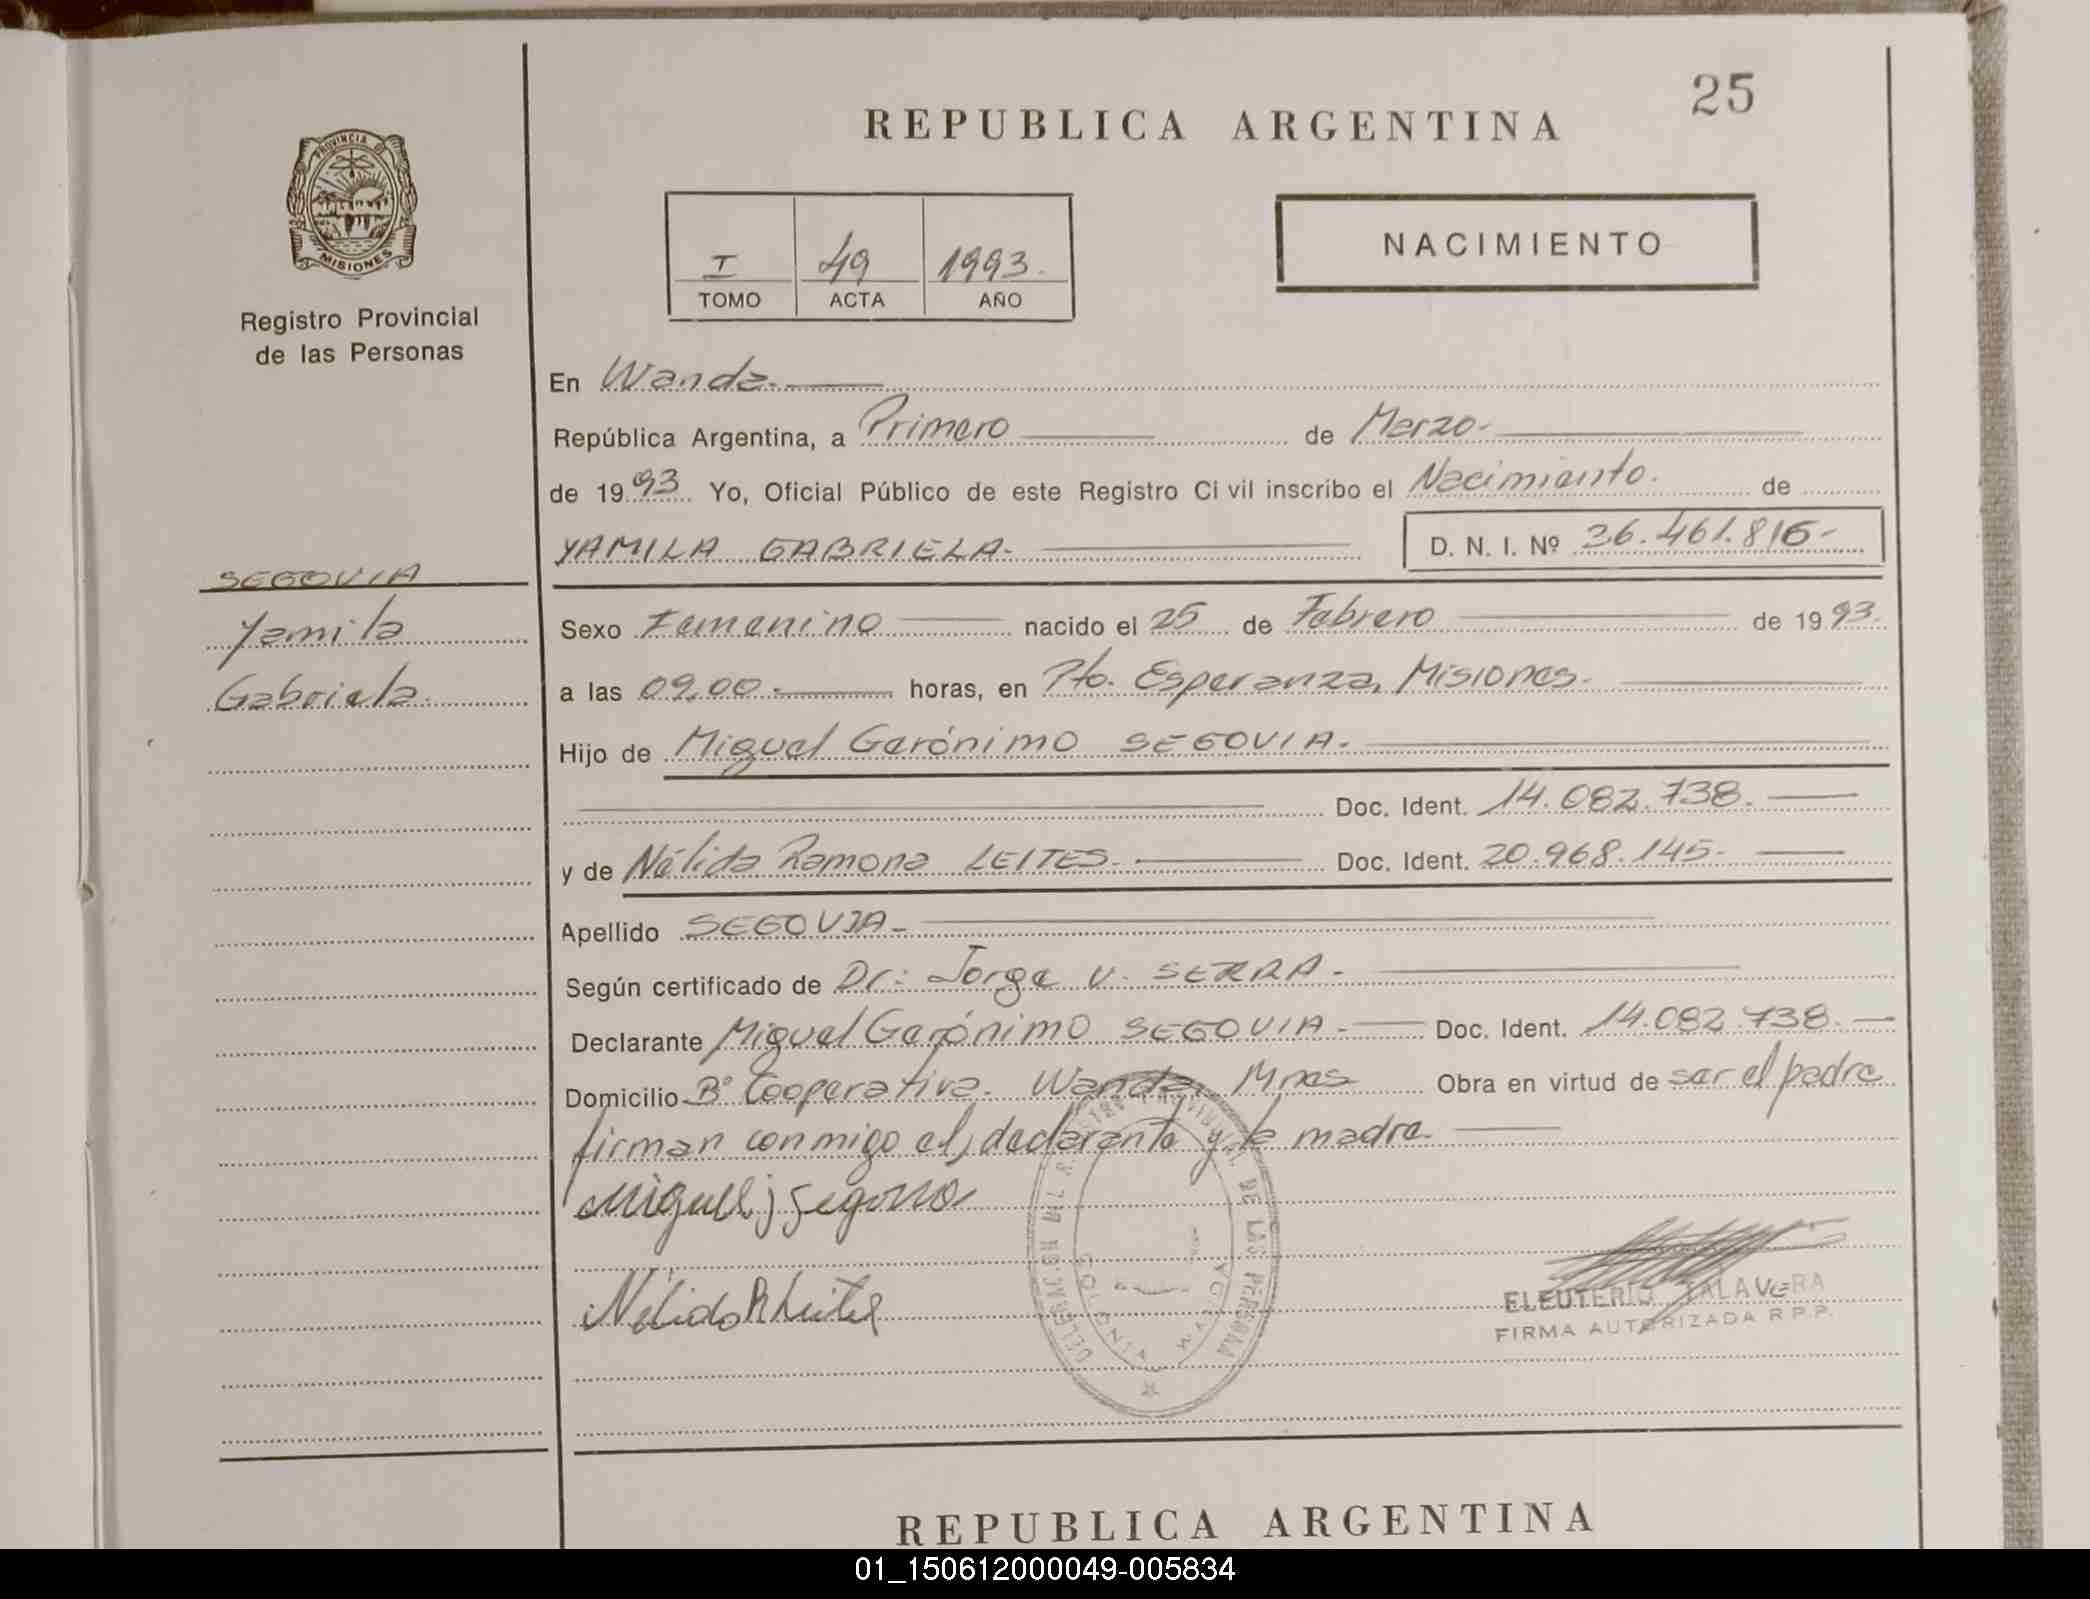 25
REPUBLICA ARGENTINA
PROVINCIA DE
MISIONES
Registro Provincial
de las Personas
I 49 1993.
TOMO ACTA AÑO
NACIMIENTO
En Wanda.
República Argentina, a Primero de Marzo.
de 1993 Yo, Oficial Público de este Registro Civil inscribo el Nacimiento. de
YAMILA GABRIELA. D. N. I. Nº 36.461.816-
SEGOVIA
Yamila
Gabriela.
Sexo Femenino nacido el 25 de Febrero de 1993.
a las 09,00. horas, en Pto. Esperanza, Misiones.
Hijo de Miguel Gerónimo SEGOVIA.
Doc. Ident. 14.082.738.
y de Nélida Ramona LEITES. Doc. Ident. 20.968.145.
Apellido SEGOVIA
Según certificado de Dr: Jorge V. SERRA.
Declarante Miguel Gerónimo SEGOVIA. Doc. Ident. 14.082.738.
Domicilio Bº Cooperativa. Wanda, Mnes Obra en virtud de ser el padre
firman conmigo el declarante y la madre.
Miguel j segovia
Nelida R Leites
DE LAS PERSONA
ELEUTERIO TALAVERA
FIRMA AUTORIZADA R.P.P.
REPUBLICA ARGENTINA
01_150612000049-005834